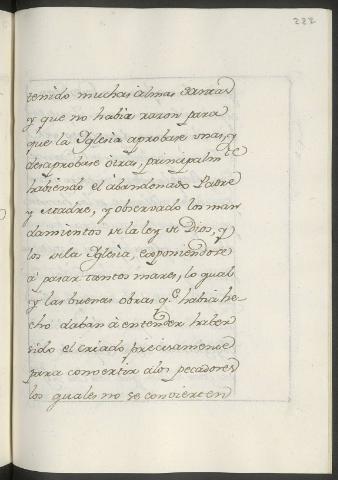 222
tenido muchas almas Santas
y que no habia razon para
que la Yglesia aprobase unas, y
desaprobase otras, principalm.te
habiendo el abandonado Padre
y Madre, y observado los man
damientos de la ley de Dios, y
los de la Yglesia, exponiendose
à pasar tantos mares, lo qual
y las buenas obras q.e habia he-
cho daban à entender haber
sido el criado precisamente
para convertir a los pecadores
los quales no se convierten